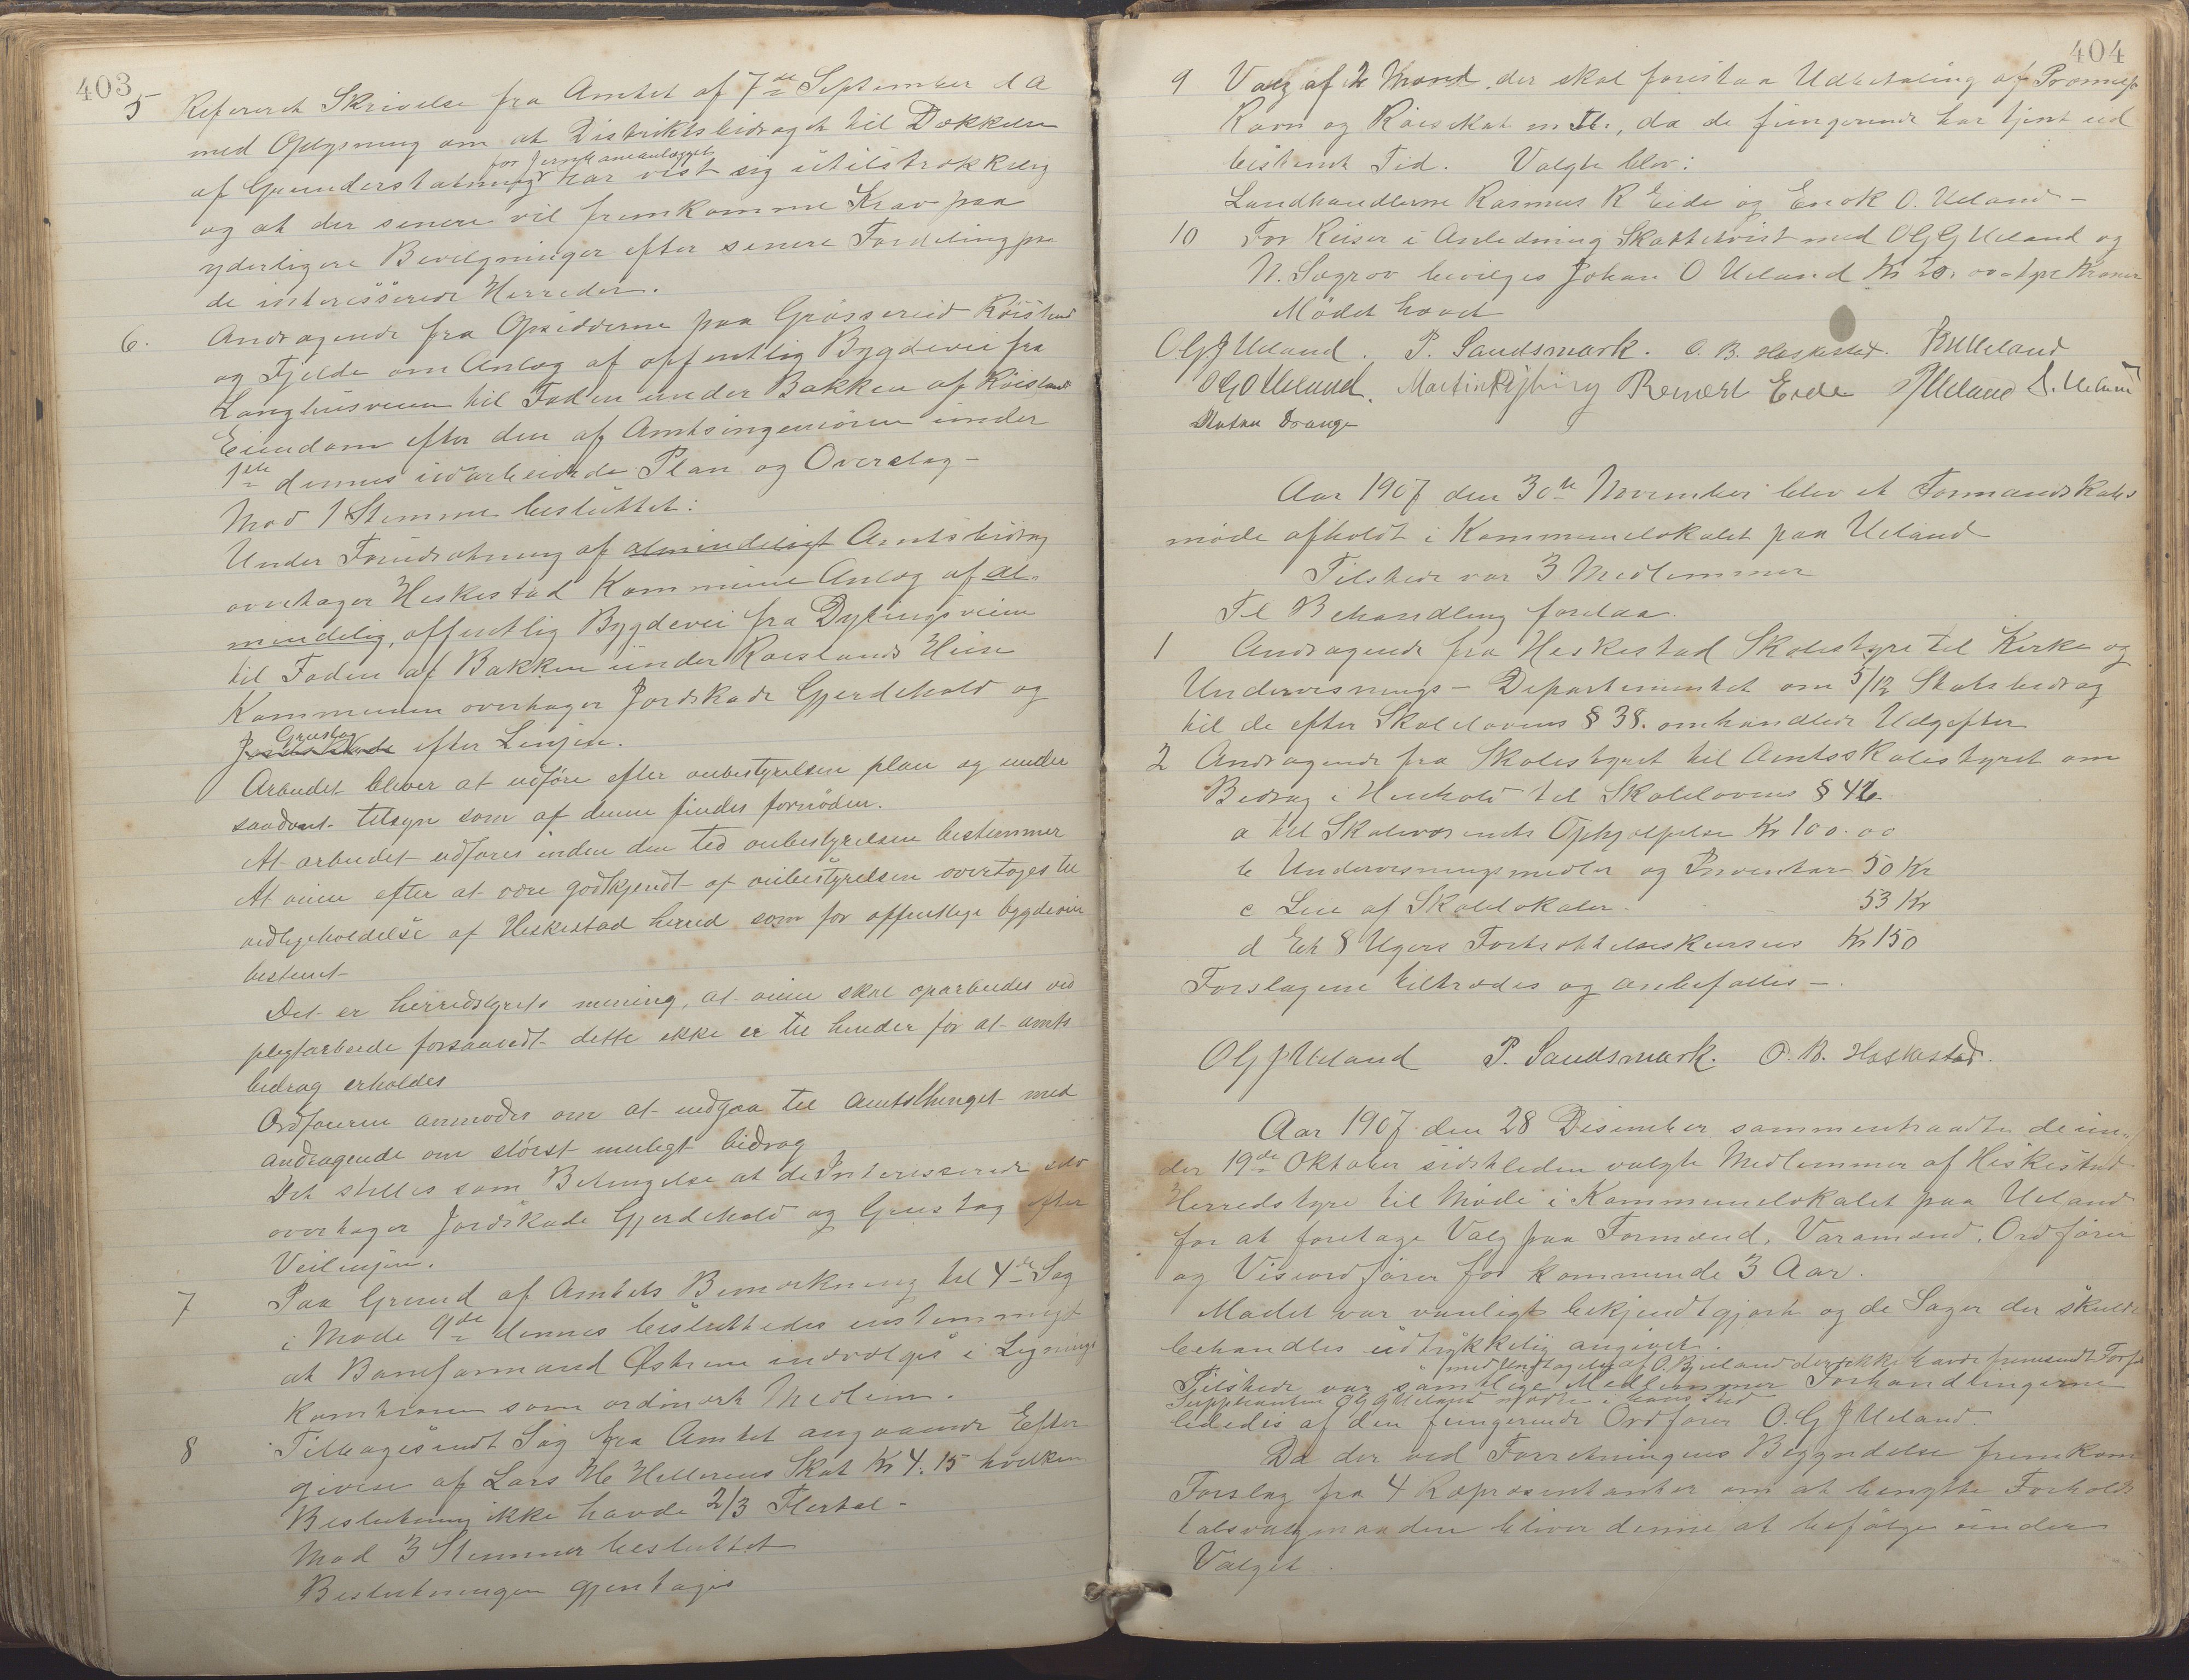 403
5 Refereret Skrivelse fra Amtet af 7de September d A
med Oplysning om at Distriktsbidraget til Dækkelse
for Jernbaneanlægget
af Grunderstatning har vist sig utilstrækkelig
og at der senere vil fremkomme Krav paa
yderligere Bevilgninger efter senere Fordeling paa
de interesserede Herreder.
6. Andragende fra Opsidderne paa Grøsereid Röisland
og Fjelde om Anlæg af offentlig Bygdevei fra
til Foden under Bakken af Röisland
Eiendom efter den af Amtsingeniøren under
1ste dennes udarbeidede Plan og Overslag –
Mod 1 Stemme besluttet:
Under Forudsætning af almindeligt Amtsbidrag
overtager Heskestad Kommune Anlæg af al-
mindelig, offentlig Bygdevei fra Dytingsveien
til Foden af Bakken under Røislands Heie
Kommunen overtager Jordskade Gjerdehold og
Grustag
efter Linjen.
Arbeidet bliver at udføre efter veibestyrelsens plan og under
saadant tilsyn som af denne findes fornøden.
At arbeidet udføres inden den tid veibestyrelsen bestemmer
At veien efter at være godkjendt af veibestyrelsen overtages til
vedligeholdelse af Heskestad herred som for offentlige bygdeveie
bestemt
Det er herredstyrets mening, at veien skal oparbeides ved
pligtarbeide forsaavidt dette ikke er til hinder for at amts
bidrag erholdes
Ordføreren anmodes om at indgaa til Amtsthinget med
andragende om størst muligt bidrag
Det stilles som Betingelse at de Interesserede selv
overtager Jordskade Gjerdehold og Grustag efter
Veilinjen.
7 Paa Grund af Amtets Bemærkning til 4de Sag
i Møde 9de dennes besluttedes enstemmigt
at Baneformand Østrem indvælges i Lignings
Komiteen som ordinært Medlem.
8 Tilbagesendt Sag fra Amtet angaaende Efter
givelse af Lars H Hellerens Skat Kr 4.15 hvilken
Beslutning ikke havde 2/3 Flertal –
Mod 3 Stemmer besluttet
Beslutningen gjentages
404
9 Valg af 2 Mænd der skal forestaa Udbetaling af Præmie for
Ravn og Röiskat m fl., da de fungerende har tjent ud
bestemt Tid. Valgte blev:
Landhandlerne Rasmus R Eide og Enok O. Ueland –
10 For Reiser i Anledning Skattetvist med O G G Ueland og
N. Søgrov bevilges Johan O Ueland Kr 20. tyve Kroner
Mödet hævet
O G J Ueland. P. Sandsmark. O. B. Heskestad. Ueland
O G O Ueland. Martin Bernert Eide Ueland Ueland
Drange
Aar 1907 den 30te November blev et Formandskabs
møde afholdt i Kommunelokalet paa Ueland
Tilstede var 3 Medlemmer
Til Behandling forelaa.
1 Andragende fra Heskestad Skolestyre til Kirke og
Undervisnings- Departementet om 5/12 Statsbidrag
til de efter Skolelovens § 38. omhandlede Udgifter
2 Andragende fra Skolestyret til Amtsskolestyret om
Bidrag i Henhold til Skolelovens §
a til Skolevæsenets Ophjælpelse Kr 100.00
b Undervisningsmidler og Inventar 50 Kr
c Leie af Skolelokaler 53 Kr
d Et 8 Ugers Fortsættelseskursus Kr 150
Forslagene tiltrædes og anbefales –.
O G J Ueland P. Sandsmark. O. B. Heskestad.
Aar 1907 den 28 Desember sammentraadte de un-
der 19de Oktober sidstleden valgte Medlemmer af Heskestad
Herredstyre til Møde i Kommunelokalet paa Ueland
for at foretage Valg paa Formænd, Varamænd, Ordfører
og Viseordfører for kommende 3 Aar.
Mødet var vanligt bekjendtgjort og de Sager der skulde
behandles udtrykkelig angivet.
med Undtagelse af O. Bjuland der ikke havde fremsendt Forfald
Tilstede var samtlige Medlemmer Forhandlingerne
Suppleanten O G G Ueland mødte i hans Sted
lededes af den fungerende Ordfører O. G J Ueland.
Da der ved Forretningens Begyndelse fremkom
Forslag fra 4 Repræsentanter om at benytte Forholds
talsvalgmaaden bliver denne at befølge under
Valget.